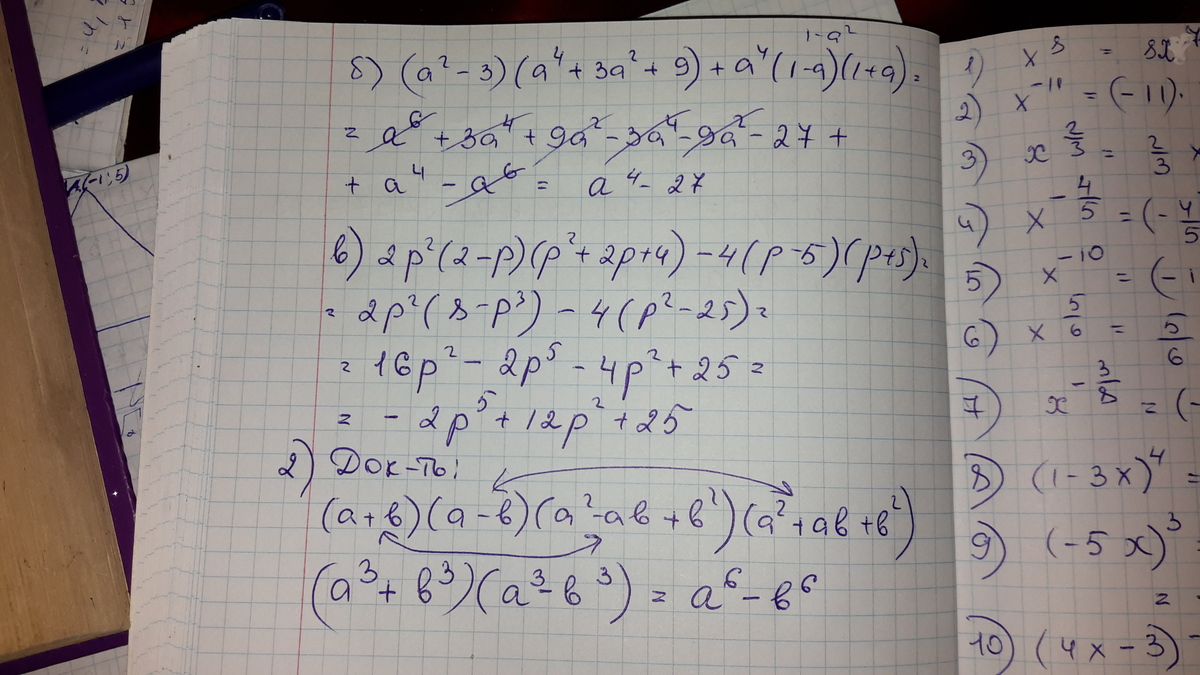 1-a²
б) (a² - 3)(a⁴ + 3a² + 9) + a⁴(1-a)(1+a) =
= a⁶ + 3a⁴ + 9a² - 3a⁴ - 9a² - 27 +
+ a⁴ - a⁶ = a⁴ - 27
в) 2p²(2-p)(p² + 2p + 4) - 4(p-5)(p+5) =
= 2p²(8 - p³) - 4(p² - 25) =
= 16p² - 2p⁵ - 4p² + 25 =
= - 2p⁵ + 12p² + 25
2) Док-ть:
(a+в)(a-в)(a² - aв + в²)(a² + aв + в²)
(a³ + в³)(a³ - в³) = a⁶ - в⁶
1) x⁸ = 8x⁷
2) x⁻¹¹ = (-11)·
3) x^(2/3) = 2/3 x
4) x^(-4/5) = (-4/5
5) x⁻¹⁰ = (-1
6) x^(5/6) = 5/6
7) x^(-3/8) = (-
8) (1-3x)⁴ =
9) (-5x)³ =
=
10) (4x-3)
A(-1;5)